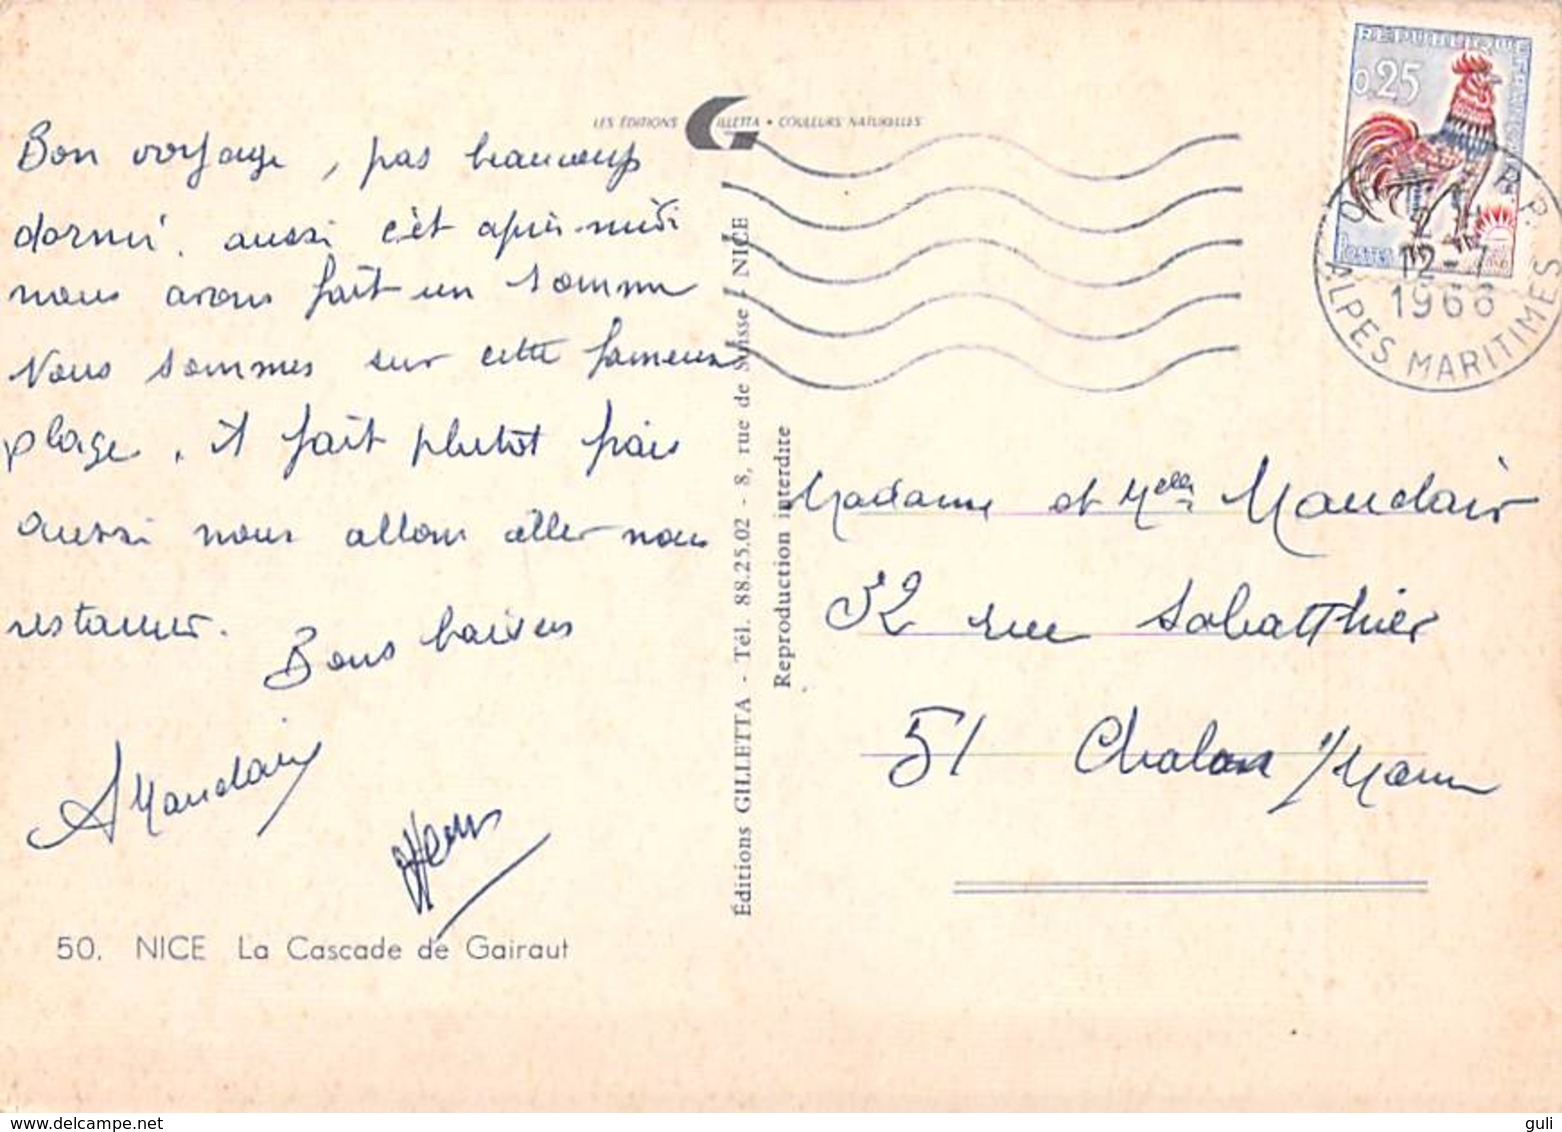 LES ÉDITIONS GILLETTA • COULEURS NATURELLES
Bon voyage, pas beaucoup
dormi. aussi cet après-midi
nous avons fait un somme
Nous sommes sur cette fameuse
plage, il fait plutôt frais
aussi nous allons aller nous
restaurer.
Bons baisers
A Mauclair
50. NICE La Cascade de Gairaut
Éditions GILLETTA - Tél. 88.25.02 - 8, rue de Suisse - NICE
Reproduction interdite
RÉPUBLIQUE FRANÇAISE
0,25
POSTES
12-7
1966
ALPES MARITIMES
Madame et Melle Mauclair
32 rue Sabatthier
51 Chalons s/Marne
delcampe.net
guli